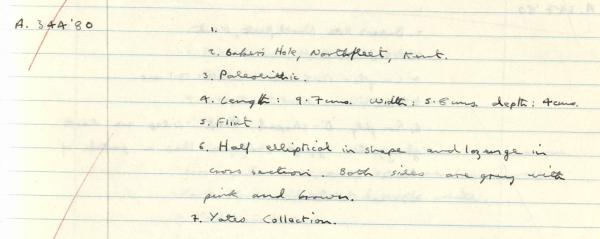 A. 344'80
1.
2. Baker's Hole, Northfleet, Kent.
3. Paleolithic.
4. Length: 9.7cms. Width: 5.8cms. depth: 4cms.
5. Flint.
6. Half elliptical in shape and lozenge in
cross section. Both sides are grey with
pink and brown.
7. Yates Collection.